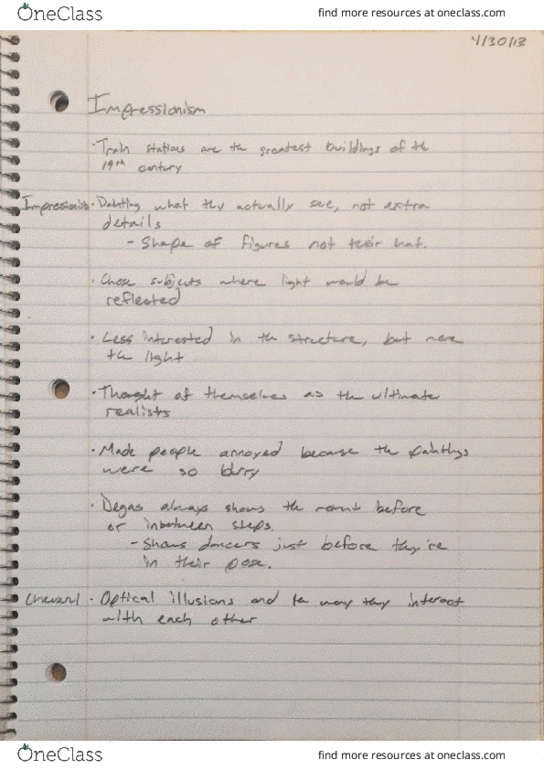 OneClass
find more resources at oneclass.com
4/30/13
Impressionism
• Train stations are the greatest buildings of the
19th century
Impressionists • Painting what they actually see, not extra
details
- Shape of figures not their hat.
• Chose subjects where light would be
reflected
• Less interested in the structure, but more
the light
• Thought of themselves as the ultimate
realists
• Made people annoyed because the paintings
were so blurry
• Degas always shows the moment before
or inbetween steps.
- Shows dancers just before they're
in their pose.
• Optical illusions and the way they interact
with each other
OneClass
find more resources at oneclass.com